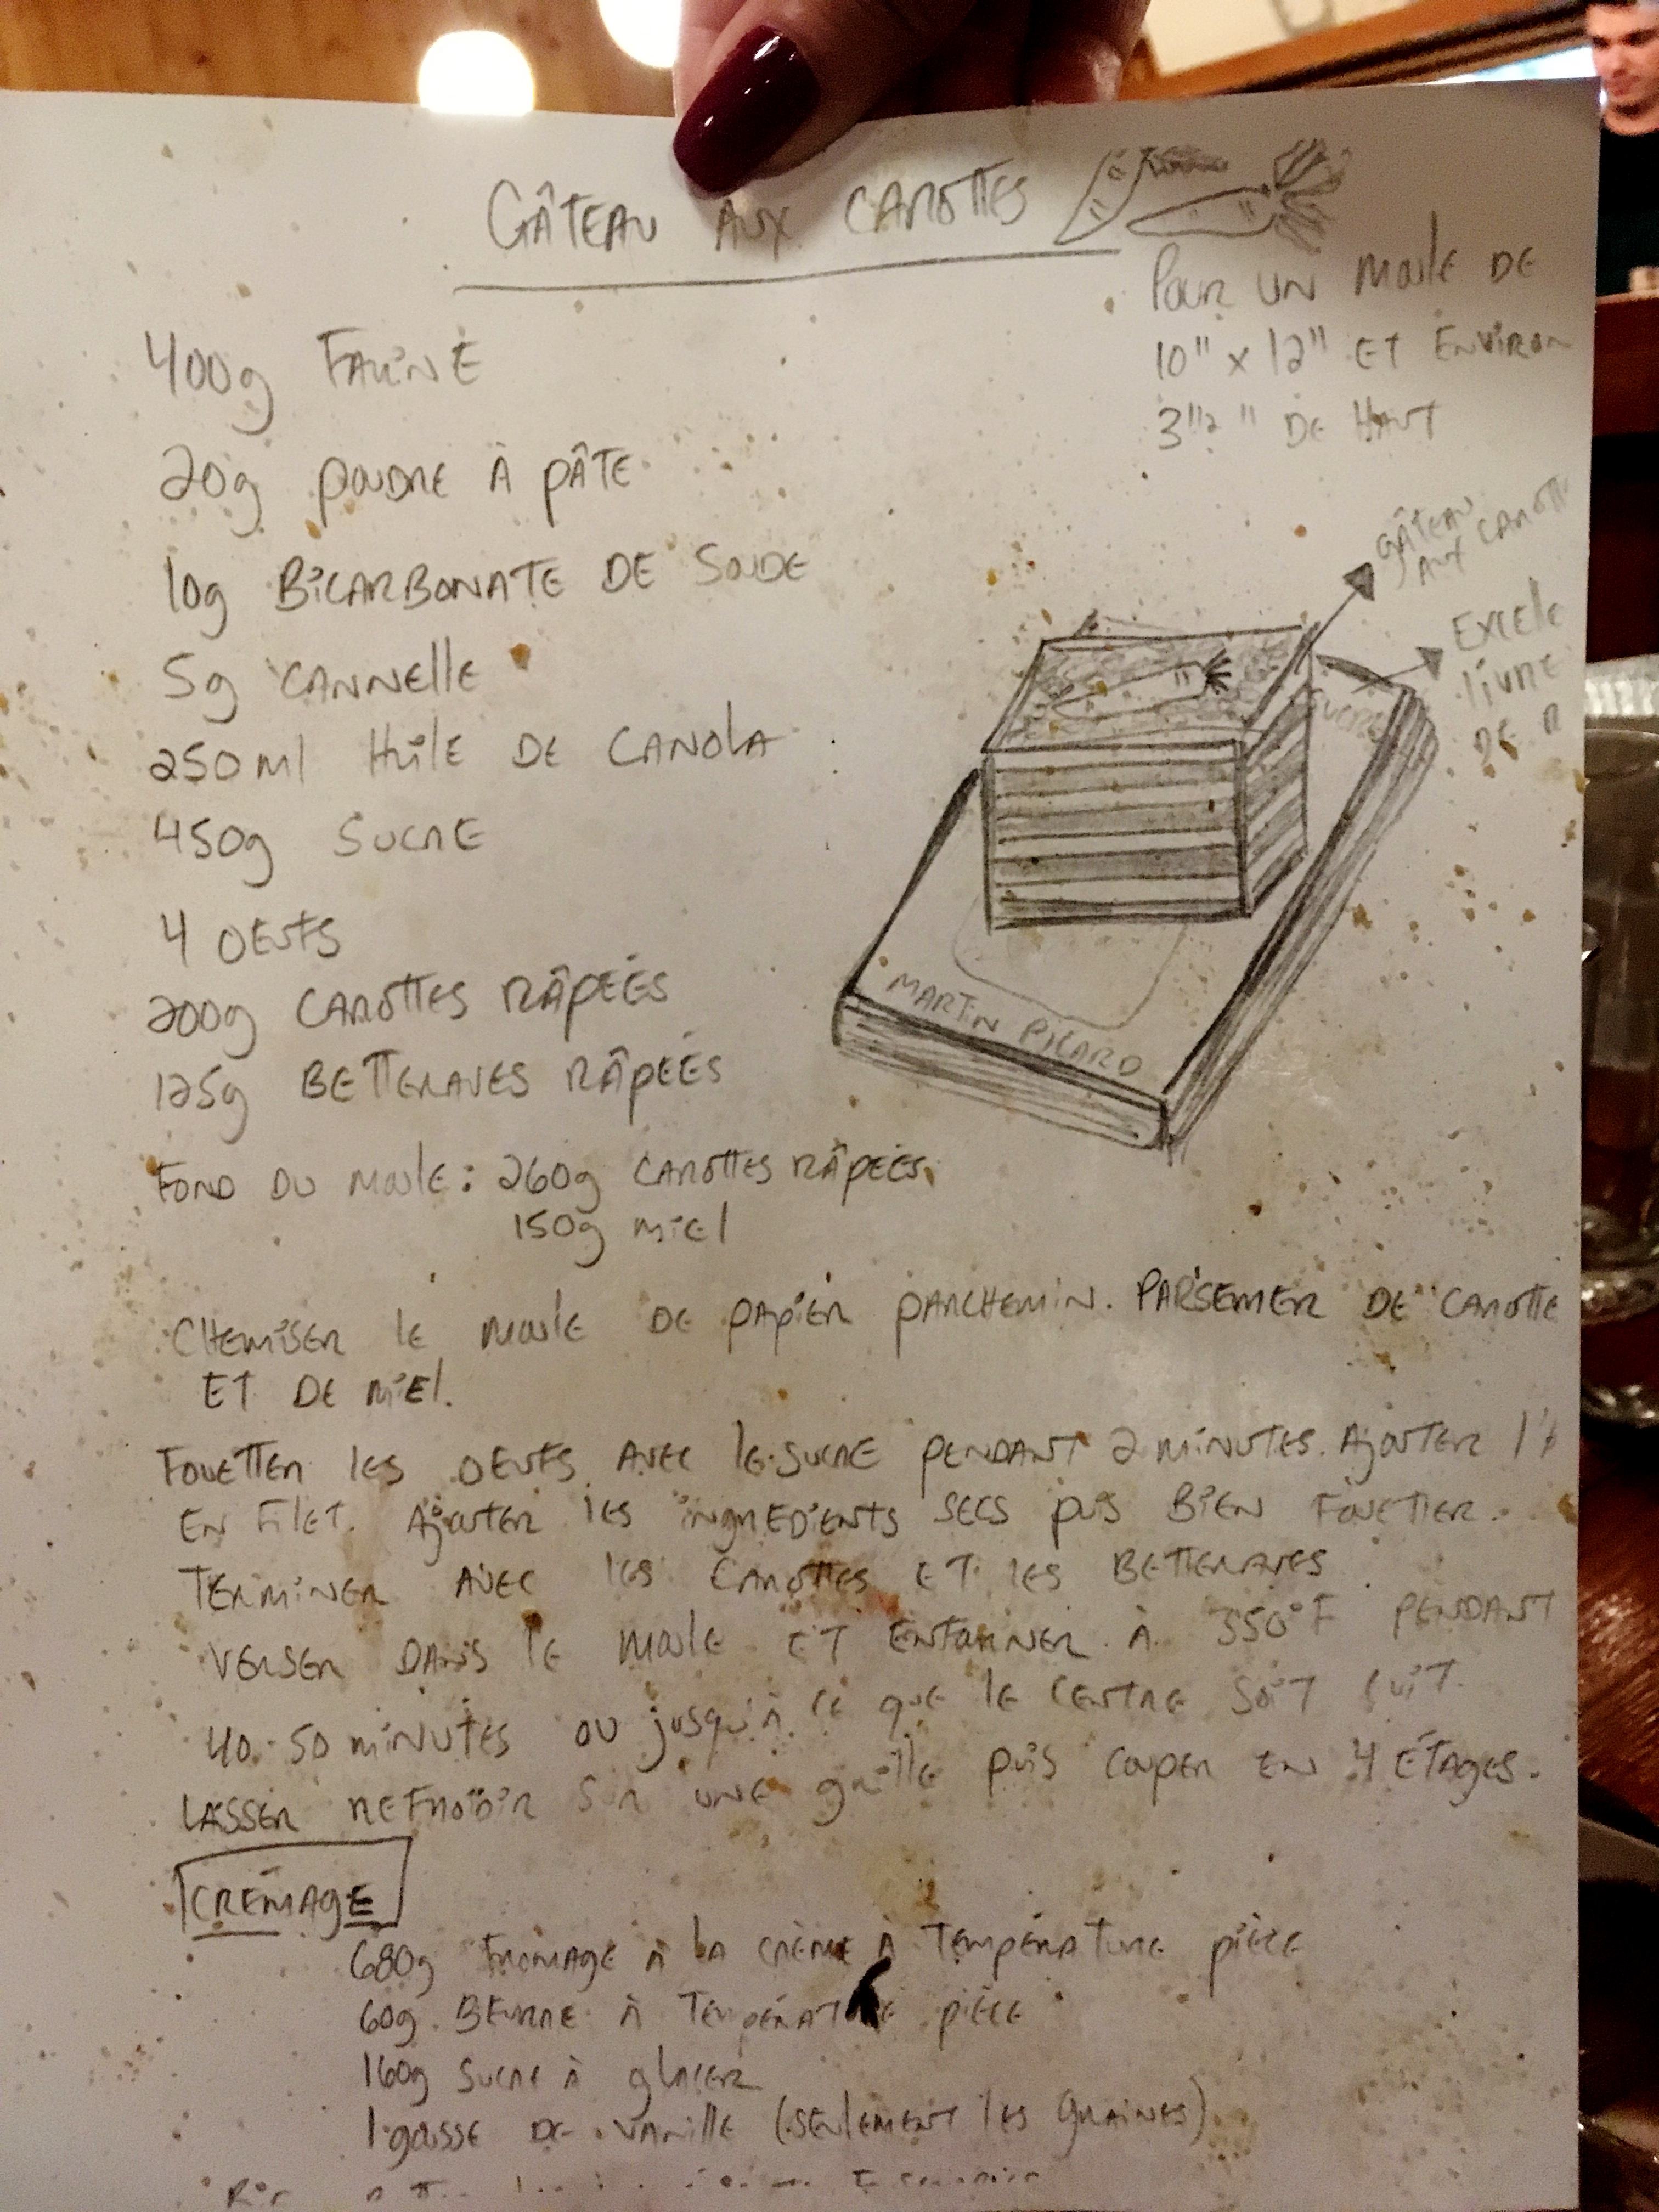 GÂTEAU AUX CAROTTES
POUR UN MOULE DE
10" x 12" ET ENVIRON
3 1/2 " DE HAUT
400g FARINE
20g POUDRE À PÂTE
10g BICARBONATE DE SOUDE
5g CANNELLE
250ml HUILE DE CANOLA
450g SUCRE
4 OEUFS
200g CAROTTES RÂPÉES
125g BETTERAVES RÂPÉES
GÂTEAU
AUX
LIVRE
DE
MARTIN PICARD
FOND DU MOULE: 260g CAROTTES RÂPÉES
150g MIEL
CHEMISER LE MOULE DE PAPIER PARCHEMIN. PARSEMER DE CAROTTE
ET DE MIEL.
FOUETTER LES OEUFS AVEC LE SUCRE PENDANT 2 MINUTES. AJOUTER
EN FILET. AJOUTER LES INGREDIENTS SECS PUIS BIEN FOUETTER.
TERMINER AVEC LES CAROTTES ET LES BETTERAVES.
VERSER DANS LE MOULE ET ENFOURNER À 350°F PENDANT
40-50 MINUTES OU JUSQU'À CE QUE LE CENTRE SOIT CUIT.
LAISSER REFROIDIR SUR UNE GRILLE PUIS COUPER EN 4 ÉTAGES.
CRÉMAGE
680g FROMAGE À LA CRÈME À TEMPÉRATURE PIÈCE
60g BEURRE À TEMPÉRATURE PIÈCE
160g SUCRE À GLACER
1 GOUSSE DE VANILLE (SEULEMENT LES GRAINES)